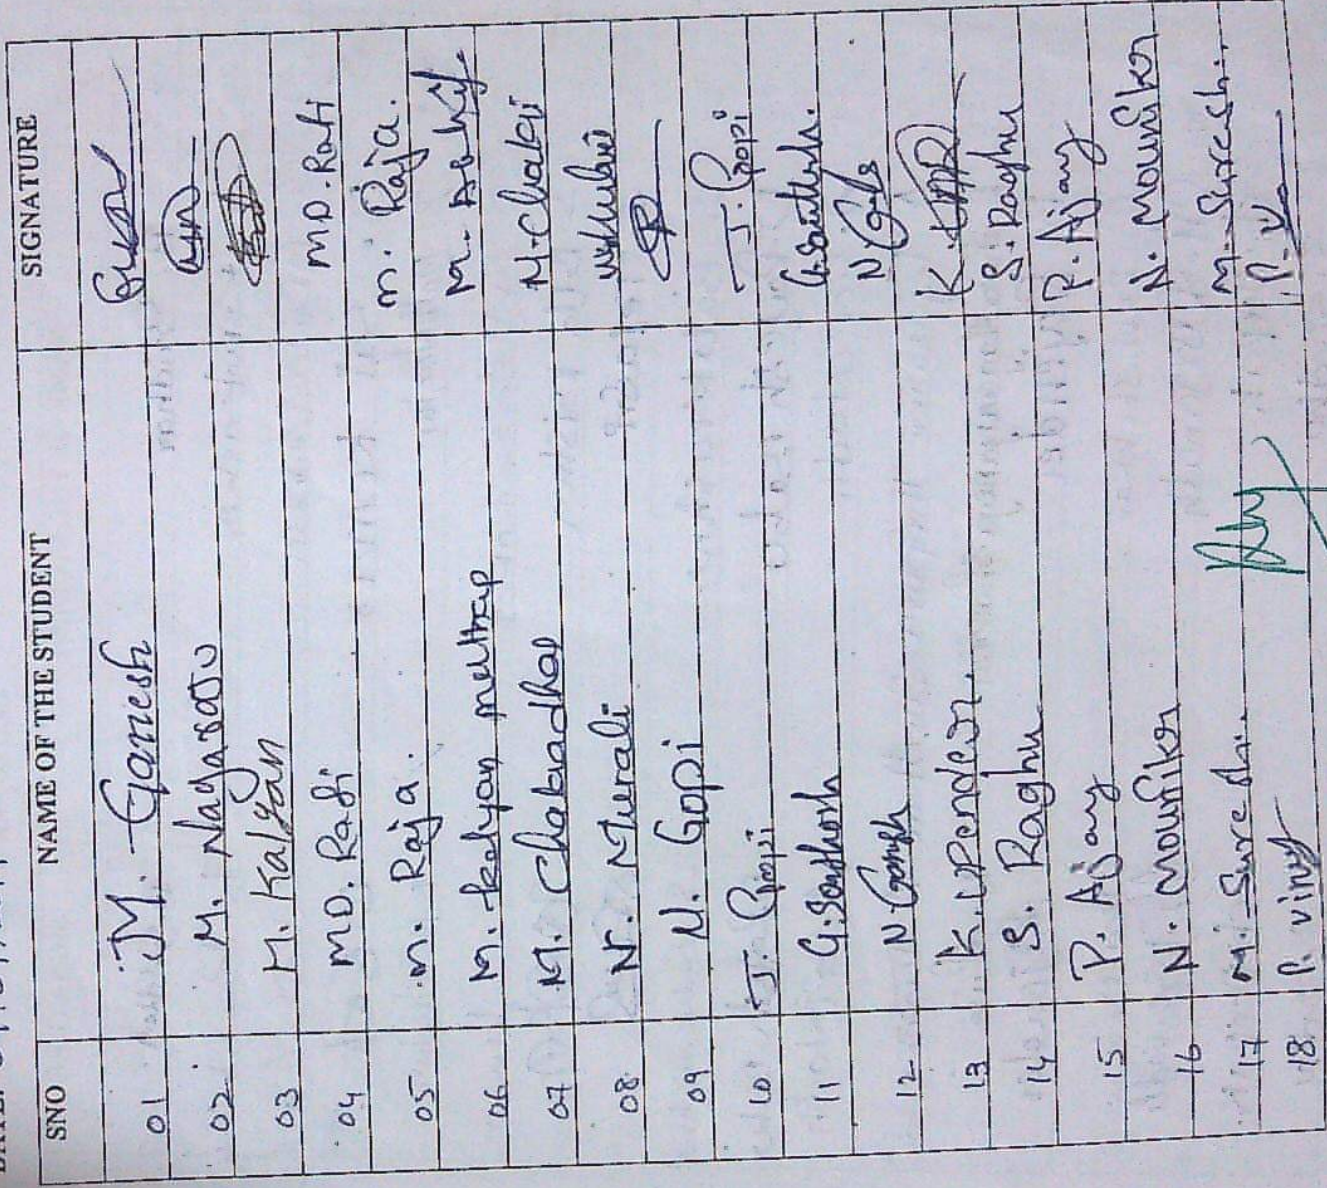 SNO NAME OF THE STUDENT SIGNATURE
01 M. Ganesh
02 M. Nagaraju
03 M. Kalyan
04 MD. Rafi MD. Rafi
05 M. Raja. M. Raja.
06 M. kalyan
07 M. Chakradhar M. Chakri
08 N. Murali
09 N. Gopi
10 J. Gopi J. Gopi
11 G. Santhosh G. Santhosh.
12 N Ganesh
13 K. Upender. K.
14 S. Raghu S. Raghu
15 P. Ajay P. Ajay
16 N. Mounika N. Mounika
17 M. Suresh. M. Suresh..
18 P. vinay P.